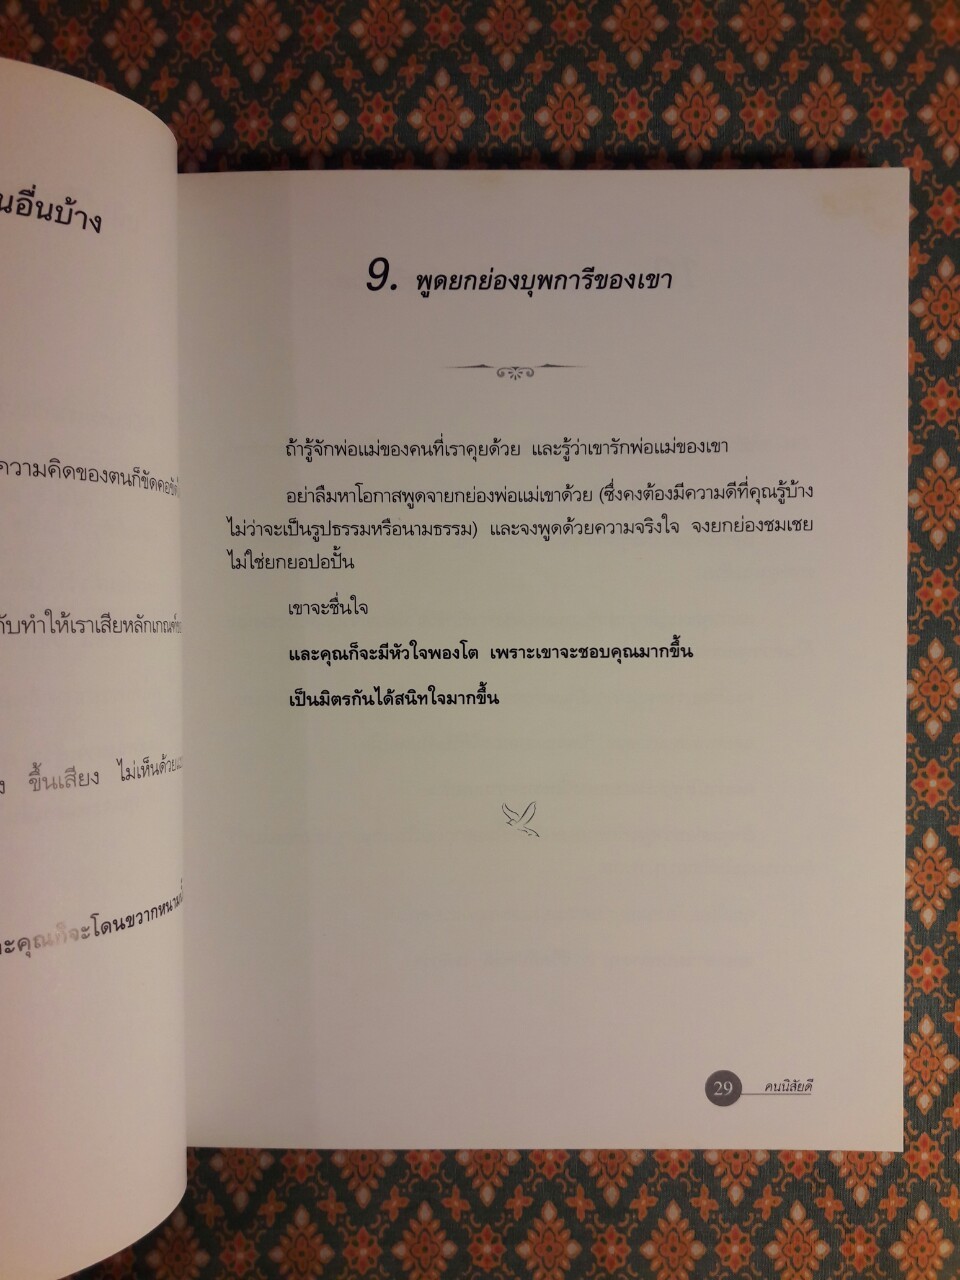 นอื่นบ้าง
ความคิดของตนก็ขัดคอ
ทำให้เราเสียหลักเกณฑ์
ขึ้นเสียง ไม่เห็นด้วย
คุณก็จะโดนขวากหนาม
9. พูดยกย่องบุพการีของเขา
ถ้ารู้จักพ่อแม่ของคนที่เราคุยด้วย และรู้ว่าเขารักพ่อแม่ของเขา
อย่าลืมหาโอกาสพูดจายกย่องพ่อแม่เขาด้วย (ซึ่งคงต้องมีความดีที่คุณรู้บ้าง
ไม่ว่าจะเป็นรูปธรรมหรือนามธรรม) และจงพูดด้วยความจริงใจ จงยกย่องชมเชย
ไม่ใช่ยกยอปอปั้น
เขาจะชื่นใจ
และคุณก็จะมีหัวใจพองโต เพราะเขาจะชอบคุณมากขึ้น
เป็นมิตรกันได้สนิทใจมากขึ้น
29 คนนิสัยดี